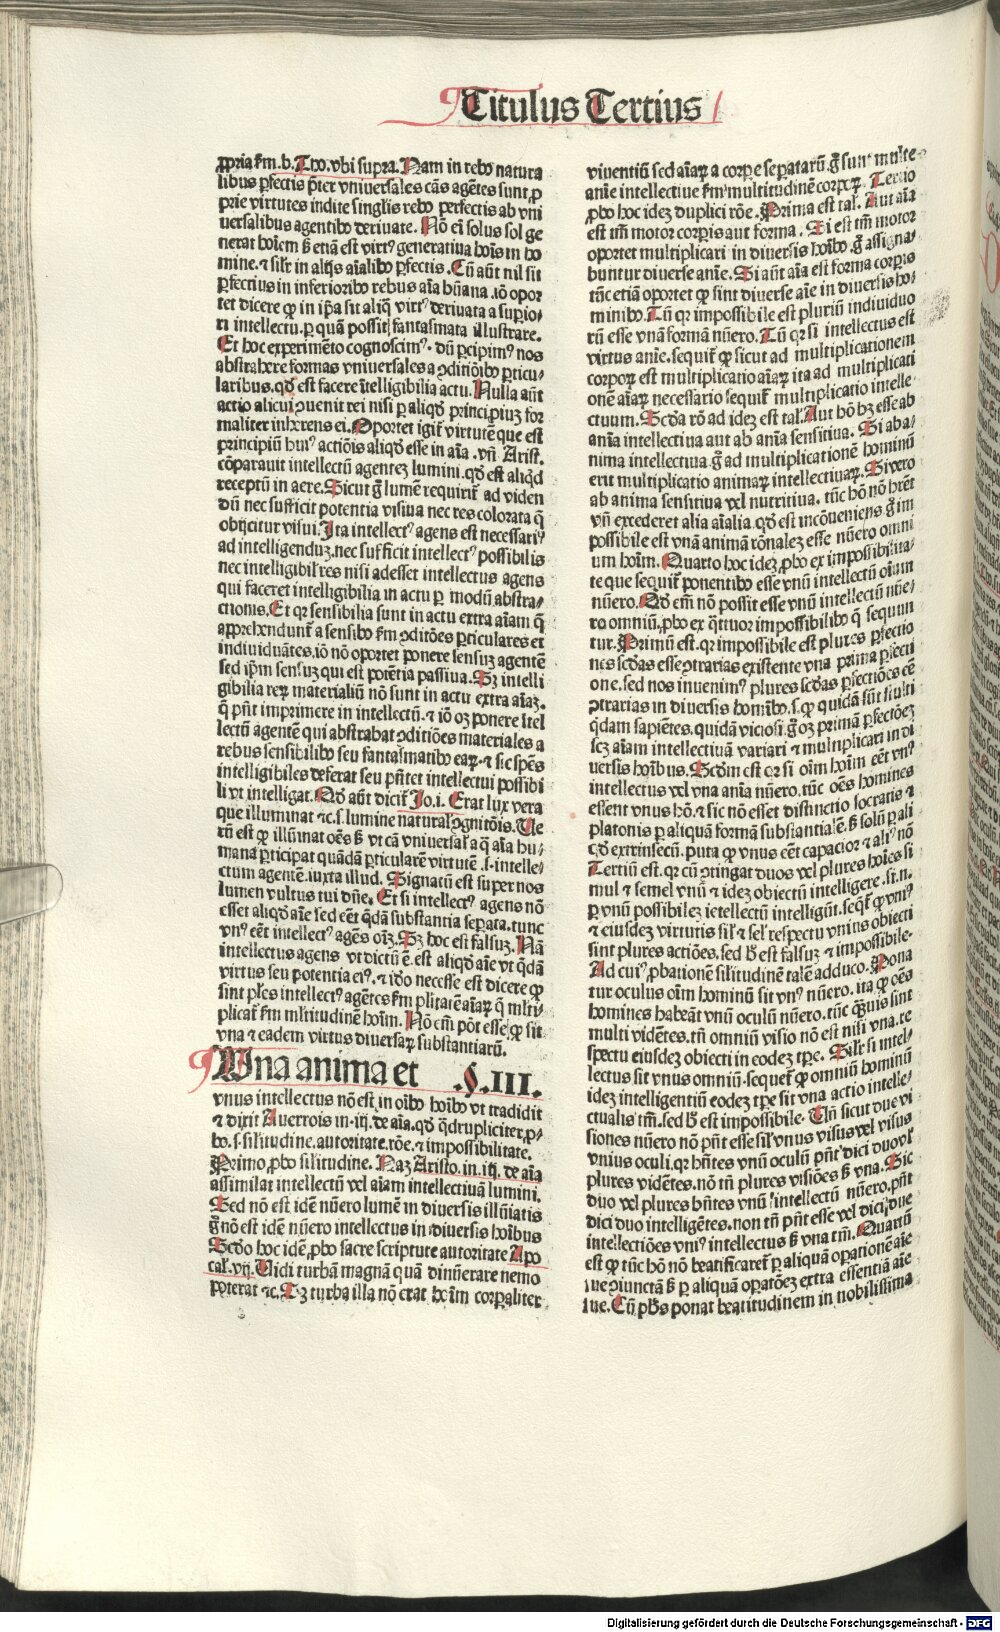 Titulus Tertius
ꝓpria ẜm.b.Tho.vbi supra.Nam in rebꝰ natura
libus ꝑfectis p̄ter vniuersales cās agētes sunt ꝓ
prie virtutes indite singĺis rebꝰ perfectis ab vni
uersalibus agentibꝰ deriuate. Nō eī solus sol ge
nerat hoīem sꝫ etiā est virtꝰ generatiua hoīs in ho
mine.⁊ silr̄ in alijs aīalibꝰ ꝑfectis. Cū aūt nil sit
ꝑfectius in inferioribꝰ rebus aīa hūana.iō opor
tet dicere ꝙ in ip̄a sit aliq̄ virtꝰ deriuata a supio/
ri intellectu.ꝑ quā possit fantasmata illustrare.
Et hoc experimēto cognoscimꝰ. dū ꝑcipimꝰ nos
abstrahere formas vniuersales a ꝯditiōibꝰ ꝑticu/
laribus.qd̄ est facere ītelligibilia actu. Nulla aūt
actio alicui ꝯuenit rei nisi ꝑ aliqd̄ principiuꝫ for
maliter inhērens ei. Oportet igit᷑ virtutē que est
principiū huiꝰ actiōis aliqd̄ esse in aīa .vn̄ Arist.
cōparauit intellectū agenteꝫ lumini.qd̄ est aliqd̄
receptū in aere. Sicut g̊ lumē requirit᷑ ad viden
dū nec sufficit potentia visiua nec res colorata q̄
obijcitur visui. Ita intellectꝰ agens est necessariꝰ
ad intelligenduꝫ.nec sufficit intellectꝰ possibilis
nec intelligibiĺ res nisi adesset intellectus agens
qui faceret intelligibilia in actu ꝑ modū abstra/
ctionis. Et qꝛ sensibilia sunt in actu extra aīam q̄
apprehendunt᷑ a sensibꝰ ẜm ꝯditōes ꝑticulares et
indiuiduātes.iō nō oportet ponere sensuꝫ agentē
sed ip̄m sensuꝫ qui est potētia passiua. Sꝫ intelli
gibilia reꝝ materialiū nō sunt in actu extra aīaꝫ.
q̄ pn̄t imprimere in intellectū.⁊ iō oꝫ ponere ītel
lectū agentē qui abstrahat ꝯditiōes materiales a
rebus sensibilibꝰ seu fantasmatibꝰ eaꝝ.⁊ sic spēs
intelligibiles deferat seu pn̄tet intellectui possibi
li vt intelligat. Qd̄ aūt dicit᷑ Jo.i. Erat lux vera
que illuminat ⁊c.s.lumine naturaĺ ꝯgnitōis. Ue
rū est ꝙ illūinat oēs sꝫ vt cā vniuersaĺ a q̄ aīa hu/
mana ꝑticipat quādā ꝑticularē virtutē .s.intelle/
ctum agentē.iuxta illud. Signatū est super nos
lumen vultus tui dn̄e. Et si intellectꝰ agens nō
esset aliqd̄ aīe sed eēt qd̄ā substantia seꝑata.tunc
vnꝰ eēt intellectꝰ agēs oīꝫ. Sꝫ hoc est falsuꝫ. Nā
intellectus agens vt dictū ē.est aliqd̄ aīe vt qd̄ā
virtus seu potentia eiꝰ.⁊ idō necesse est dicere ꝙ
sint pĺes intellectꝰ agētes ẜm pĺitatē aīaꝝ q̄ mĺti/
plicat᷑ ẜm mĺtitudinē hoīm. Nō em̄ pōt esse ꝙ sit
vna ⁊ eadem virtus diuersaꝝ substantiarū.
Una anima et .§.III.
vnus intellectus nō est in oībꝰ hoībꝰ vt tradidit
⁊ dixit Auerrois in.iij.de aīa.qd̄ qd̄rupliciter ꝓ/
bo.s.siĺitudine.autoritate.rōe.⁊ impossibilitate.
Primo ꝓbo siĺitudine. Naꝫ Aristo.in.iij.de aīa
assimilat intellectū vel aīam intellectiuā lumini.
Sed nō est idē nūero lumē in diuersis illūiatis
g̊ nō est idē nūero intellectus in diuersis hoībus
Scd̄o hoc idē ꝓbo sacre scripture autoritate Apo
caĺ.vij. Uidi turbā magnā quā dinūerare nemo
poterat ⁊c. Sꝫ turba illa nō erat hoīm corꝑaliter
viuentiū sed aīaꝝ a corꝑe seꝑatarū.g̊ sunt multe
anīe intellectiue ẜm multitudinē corꝑꝝ. Tertio
ꝓbo hoc ideꝫ duplici rōe. Prima est taĺ. Aut aīa
est tm̄ motor corꝑis aut forma . Si est tm̄ motor
oportet multiplicari in diuersis hoībꝰ.g̊ assigna/
buntur diuerse anīe. Si aūt aīa est forma corꝑis
tūc etiā oportet ꝙ sint diuerse aīe in diuersis ho/
minibꝰ. Tū qꝛ impossibile est pluriū indiuiduo
rū esse vnā formā nūero. Tū qꝛ si intellectus est
virtus anīe.sequit᷑ ꝙ sicut ad multiplicationem
corporꝝ est multiplicatio aīaꝝ ita ad multiplicati
onē aīaꝝ necessario sequit᷑ multiplicatio intelle/
ctuum. Scd̄a rō ad ideꝫ est taĺ. Aut hō hꝫ esse ab
anīa intellectiua aut ab anīa sensitiua. Si ab a/
nima intellectiua.g̊ ad multiplicationē hominū
erit multiplicatio animaꝝ intellectiuarꝝ. Si vero
ab anima sensitiua vel nutritiua. tūc hō nō hr̄et
vn̄ excederet alia aīalia.qd̄ est incōueniens.g̊ im
possibile est vnā animā rōnaleꝫ esse nūero omni
um hoīm. Quarto hoc ideꝫ ꝓbo ex impossibilita/
te que sequit᷑ ponentibꝰ esse vnū intellectū oīum
nūero. Qd̄ em̄ nō possit esse vnū intellectū nūe/
ro omniū.ꝓbo ex q̄ttuor impossibilibꝰ q̄ sequun
tur. Primū est.qꝛ impossibile est plures ꝑfectio
nes scd̄as esse ꝯtrarias existente vna prima ꝑfecti
one.sed nos inuenimꝰ plures scd̄as ꝑfectiōes eē
ꝯtrarias in diuersis hominibꝰ.s.ꝙ quidā sūt stulti
qd̄am sapiētes.quidā viciosi.g̊ oꝫ primā ꝑfectōeꝫ
scꝫ aīam intellectiuā variari ⁊ multiplicari in di
uersis hoībus. Scd̄m est qꝛ si oīm hoīm eēt vnꝰ
intellectus vel vna anīa nūero.tūc oēs homines
essent vnus hō.⁊ sic nō esset distinctio socratis ⁊
platonis ꝑ aliquā formā substantialē.sꝫ solū ꝑ ali
qd̄ extrinsecū.puta ꝙ vnus eēt capacior ⁊ aliꝰ nō
Tertiū est.qꝛ cū ꝯtingat duos vel plures hoīes si
mul ⁊ semel vnū ⁊ ideꝫ obiectū intelligere.si.n.
ꝑ vnū possibileꝫ ietellectū intelligūt.seqt᷑ ꝙ vniꝰ
⁊ eiusdeꝫ virtutis siĺ ⁊ seĺ respectu vnius obiecti
sint plures actiōes.sed h̄ est falsuꝫ ⁊ impossibile.
Ad cuiꝰ ꝓbationē siĺitudinē talē adduco. Pona
tur oculus oīm hominū sit vnꝰ nūero.ita ꝙ oēs
homines habeāt vnū oculū nūero.tūc q̄ꝫuis sint
multi vidētes.tn̄ omniū visio nō est nisi vna.re
spectu eiusdeꝫ obiecti in eodeꝫ tꝑe. Silr̄ si intel/
lectus sit vnus omniū.sequet᷑ ꝙ omniū hominū
ideꝫ intelligentiū eodeꝫ tꝑe sit vna actio intelle/
ctualis tm̄.sed h̄ est impossibile. Un̄ sicut due vi
siones nūero nō pn̄t esse siĺ vnus visus vel visus
vnius oculi.qꝛ hn̄tes vnū oculū pn̄t dici duo vĺ
plures vidētes.nō tn̄ plures visiōes sꝫ vna. Sic
duo vel plures hn̄tes vnū intellectū nūero.pn̄t
dici duo intelligētes.non tn̄ pn̄t esse vel dici due
intellectiōes vniꝰ intellectus sꝫ vna tm̄. Quartū
est ꝙ tūc hō nō beatificaret᷑ ꝑ aliquā oꝑationē aīe
sue ꝯiunctā sꝫ ꝑ aliquā oꝑatōeꝫ extra essentiā aīe
sue. Cū pħs ponat beatitudinem in nobilissima
Digitalisierung gefördert durch die Deutsche Forschungsgemeinschaft - DFG